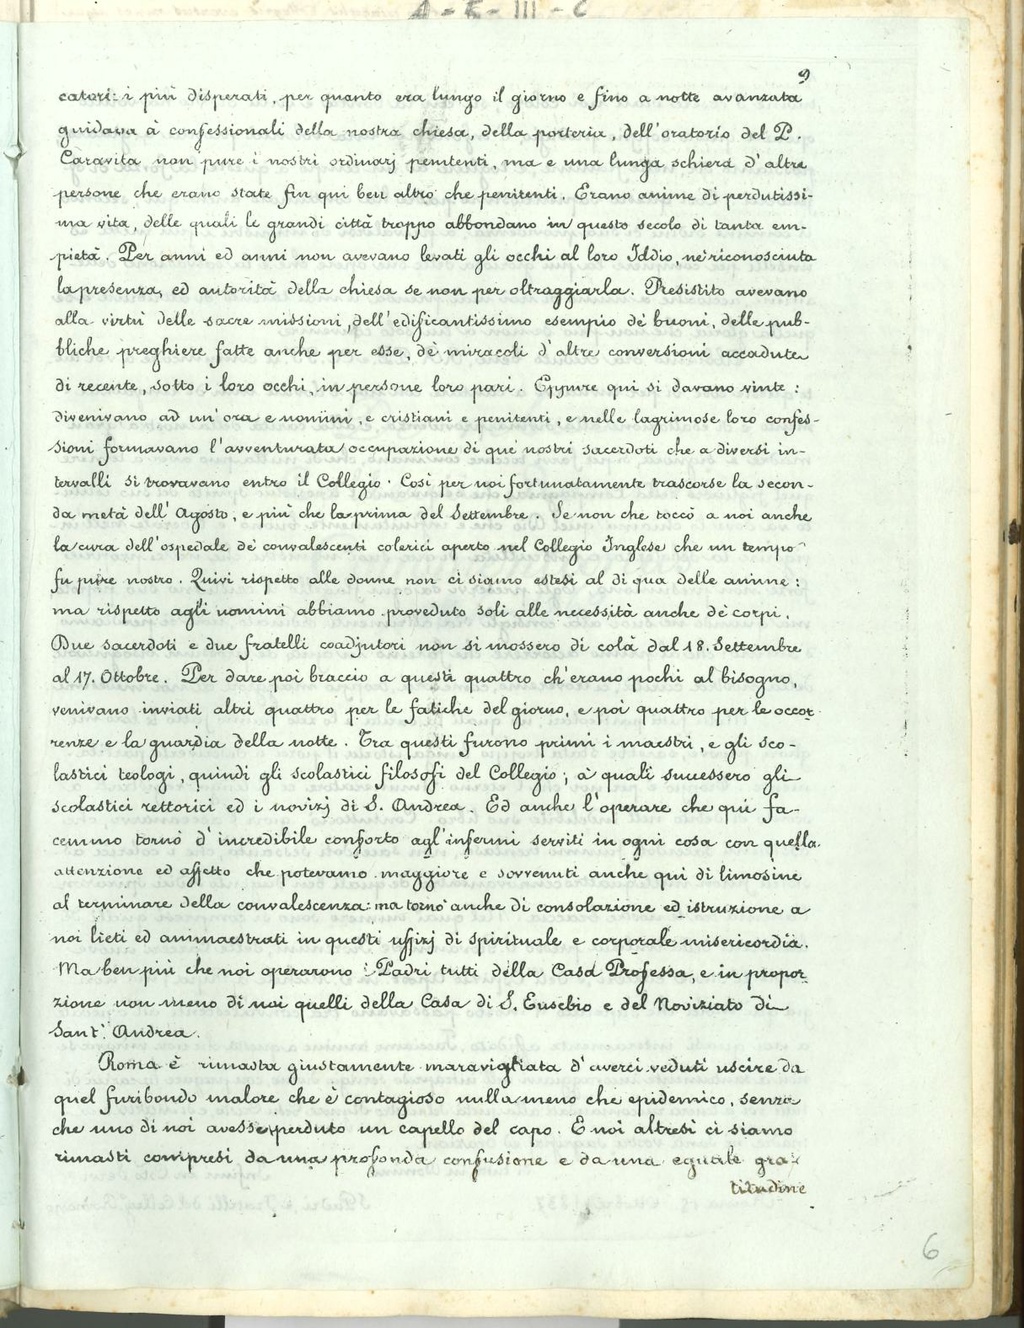 A - 5 - III - C
9
catori: i più disperati, per quanto era lungo il giorno e fino a notte avanzata
guidava à confessionali della nostra chiesa, della porteria, dell'oratorio del P.
Caravita non pure i nostri ordinarj penitenti, ma e una lunga schiera d'altre
persone che erano state fin qui ben altro che penitenti. Erano anime di perdutissi-
ma vita, delle quali le grandi città troppo abbondano in questo secolo di tanta em-
pietà. Per anni ed anni non avevano levati gli occhi al loro Iddio, nè riconosciuta
la presenza, ed autorità della chiesa se non per oltraggiarla. Resistito avevano
alla virtù delle sacre missioni, dell'edificantissimo esempio de' buoni, delle pub-
bliche preghiere fatte anche per esse, de' miracoli d'altre conversioni accadute
di recente, sotto i loro occhi, in persone loro pari. Eppure qui si davano vinte:
divenivano ad un'ora e uomini, e cristiani e penitenti, e nelle lagrimose loro confes-
sioni formavano l'avventurata occupazione di que' nostri sacerdoti che a diversi in-
tervalli si trovavano entro il Collegio. Così per noi fortunatamente trascorse la secon-
da metà dell'Agosto, e più che la prima del Settembre. Se non che toccò a noi anche
la cura dell'ospedale de' convalescenti colerici aperto nel Collegio Inglese che un tempo
fu pure nostro. Quivi rispetto alle donne non ci siamo estesi al di qua delle anime:
ma rispetto agli uomini abbiamo proveduto soli alle necessità anche de' corpi.
Due sacerdoti e due fratelli coadjutori non si mossero di colà dal 18. Settembre
al 17. Ottobre. Per dare poi braccio a questi quattro ch'erano pochi al bisogno,
venivano inviati altri quattro per le fatiche del giorno, e poi quattro per le occor-
renze e la guardia della notte. Tra questi furono primi i maestri, e gli sco-
lastici teologi, quindi gli scolastici filosofi del Collegio; à quali successero gli
scolastici rettorici ed i novizj di S. Andrea. Ed anche l'operare che qui fa-
cemmo tornò d'incredibile conforto agl'infermi serviti in ogni cosa con quella
attenzione ed affetto che potevamo maggiore e sovvenuti anche qui di limosine
al terminare della convalescenza: ma tornò anche di consolazione ed istruzione a
noi lieti ed ammaestrati in questi uffizj di spirituale e corporale misericordia.
Ma ben più che noi operarono i Padri tutti della Casa Professa, e in propor-
zione non meno di noi quelli della Casa di S. Eusebio e del Noviziato di
Sant'Andrea.
Roma è rimasta giustamente maravigliata d'averci veduti uscire da
quel furibondo malore che è contagioso nulla meno che epidemico, senza
che uno di noi avesse perduto un capello del capo. E noi altresì ci siamo
rimasti compresi da una profonda confusione e da una eguale gra-
titudine
6